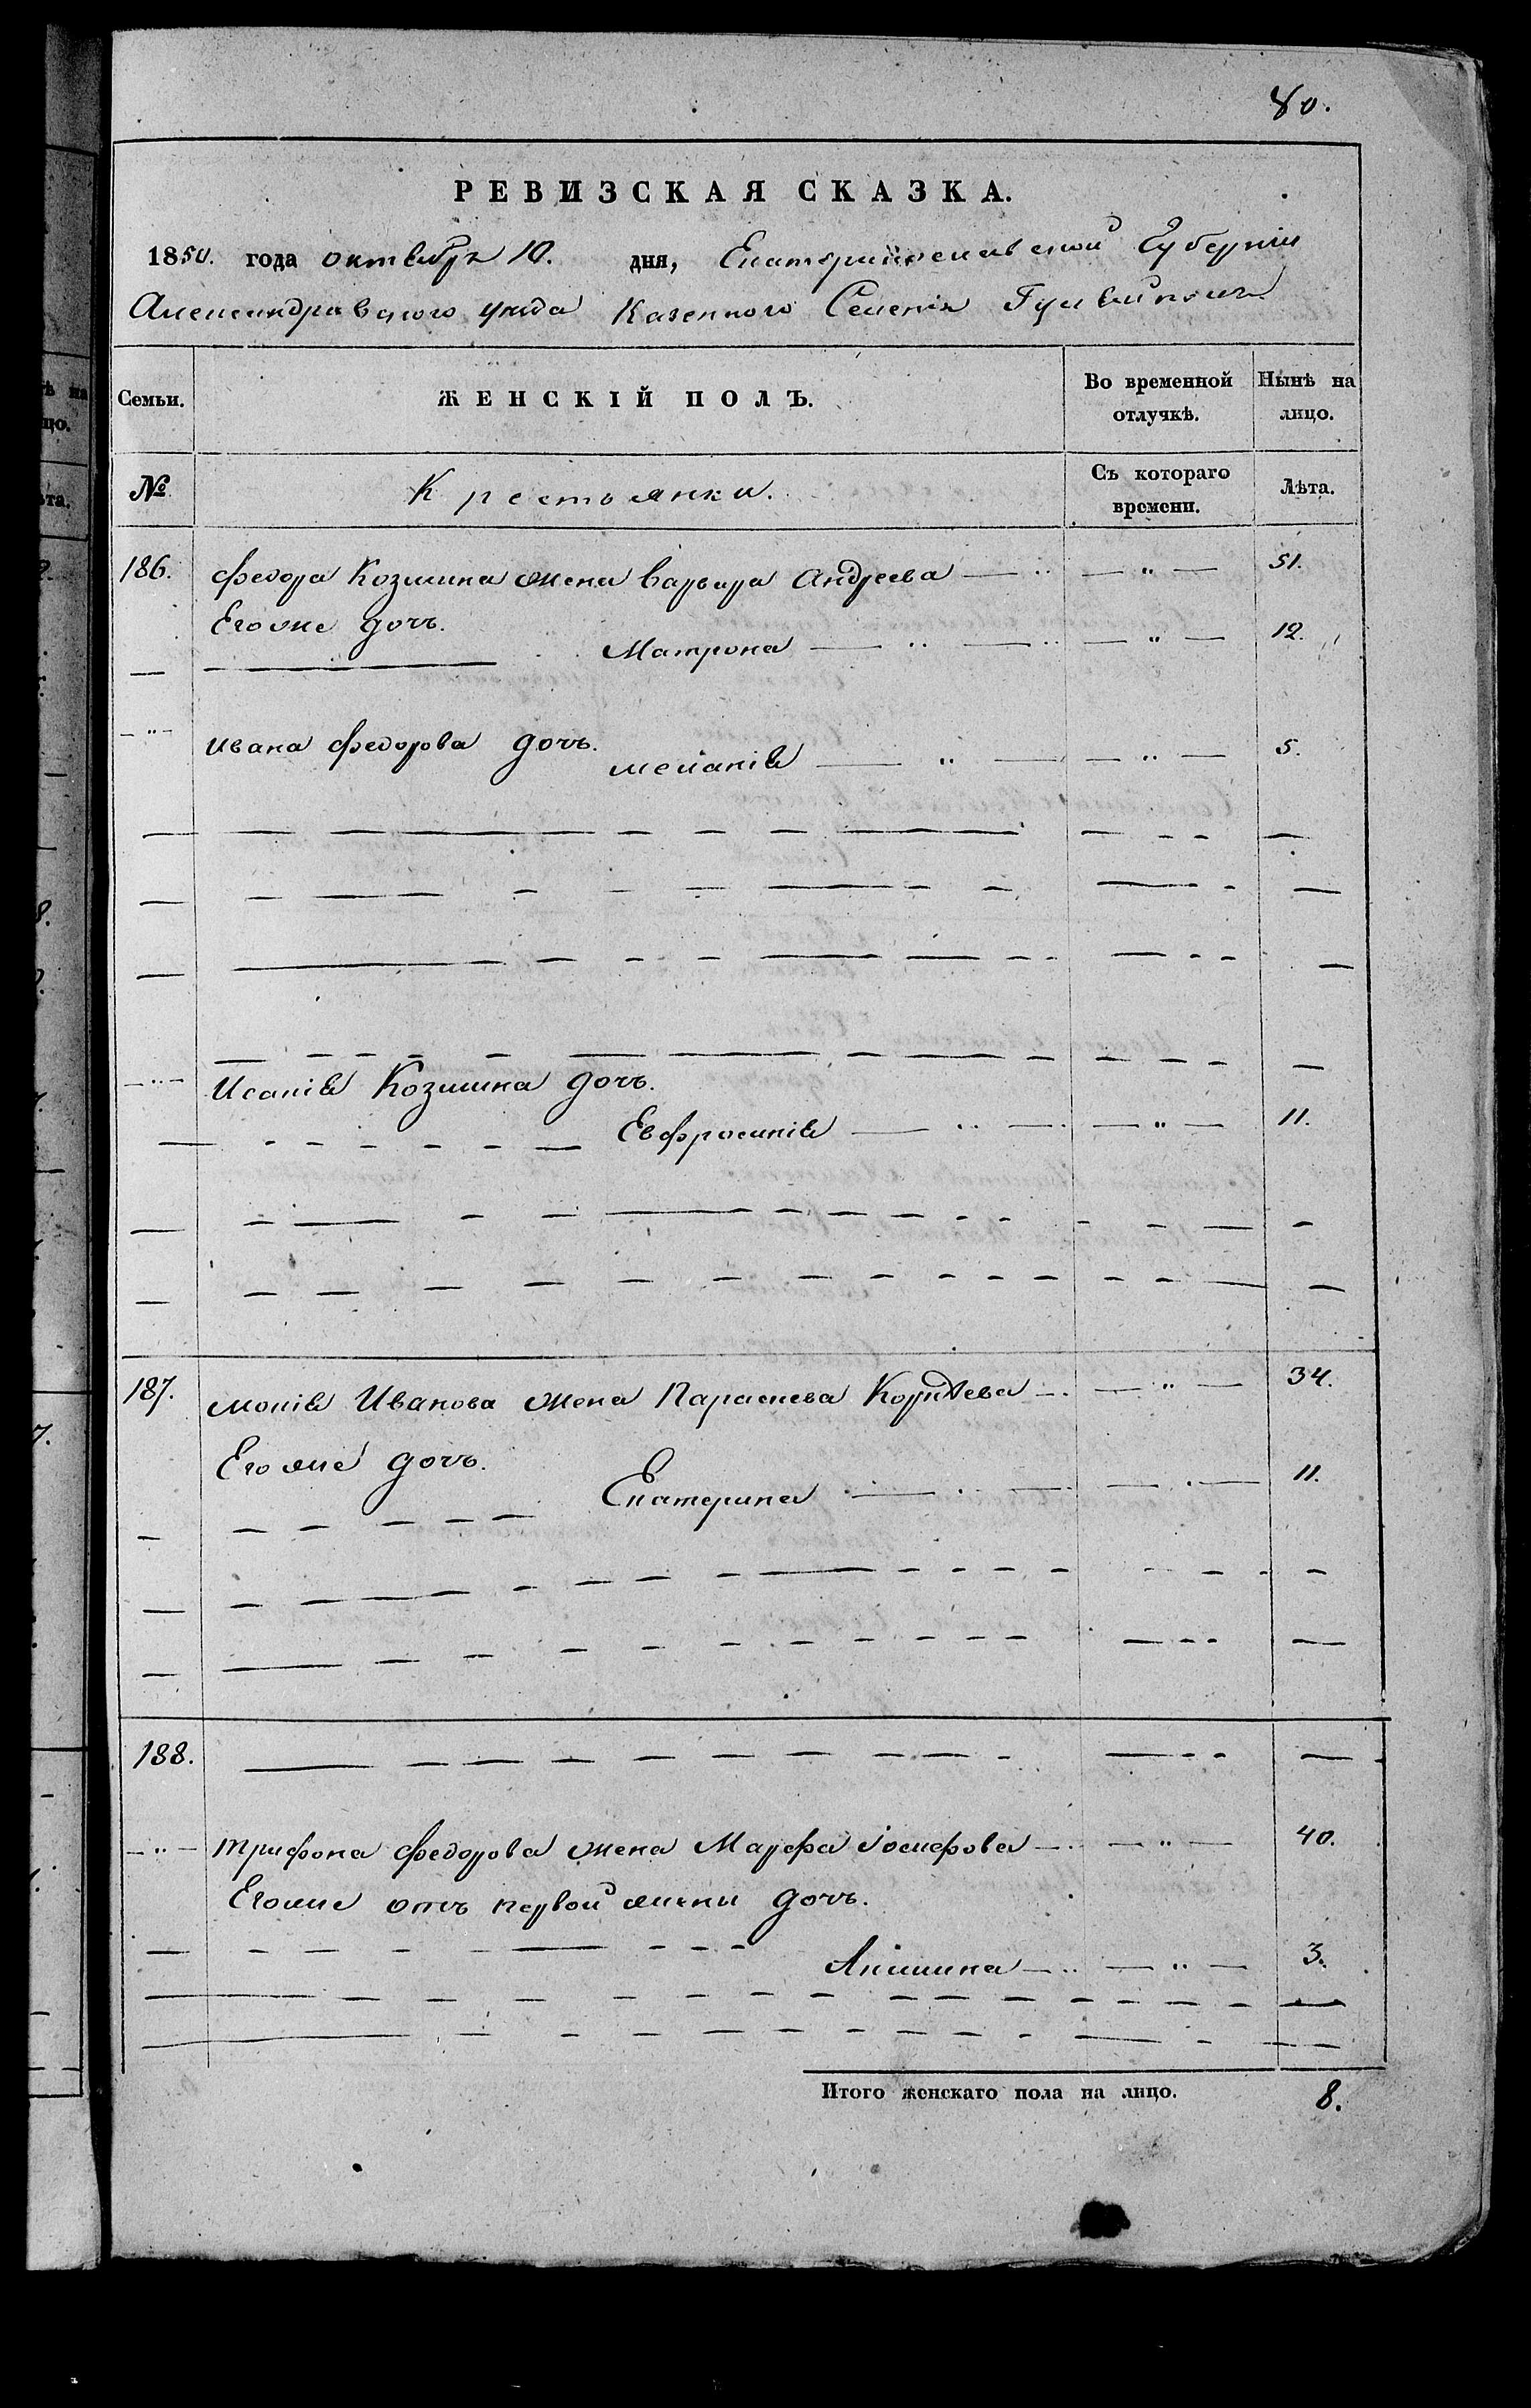 80.
РЕВИЗСКАЯ СКАЗКА.
1850. года октября 10. дня, Екатеринославской Губерніи
Александровского уезда Казенного Селенія
Семьи. ЖЕНСКІЙ ПОЛЪ. Во временной отлучкѣ. Нынѣ на лицо.
№ Крестьянки. Съ котораго времени. Лѣта.
186. Федора Козмина жена Варвара Андреева — " — 51.
Егоже дочь.
Матрона — " — 12.
— " — Ивана Федорова дочь.
Меланія — " — 5.
— " — Исаія Козмина дочь.
Евфросинія — " — 11.
187. Моисія Иванова жена Параскева Корнѣева — " — 34.
Егоже дочь.
Екатерина — 11.
188.
— " — Трифона Федорова жена Марфа Іосифова — " — 40.
Егоже отъ первой жены дочь.
Акилина — " — 3.
Итого женскаго пола на лицо. 8.